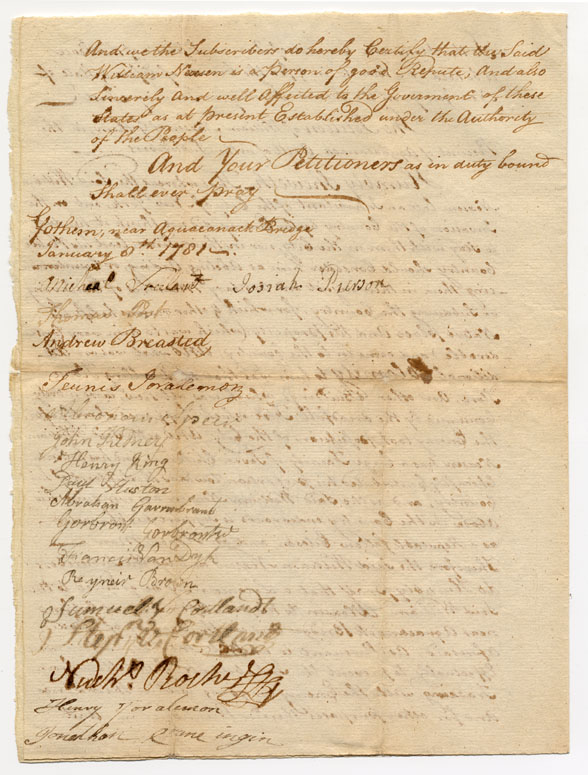 And we the Subscribers do hereby Certify that the Said
William Nixsen is a person of good Repute, And also
Sincerely And well Affected to the Goverment of these
States as at Present Established under the Authority
of the People
And Your Petitioners as in duty bound
Shall ever pray
Gothem, near Aquacanack Bridge
January 8th 1781
Micheal Josiah Pierson
Thomas
Andrew Breasted
Teunis Joralemon
John
Henry King
Huston
Abraham Garrabrant
Gorbront Gorbronts
Francis Van Dyk
Reynier
Samuel Cortlandt
Step V Cortland
Nichs Roche
Henry Joralemon
Jonathan